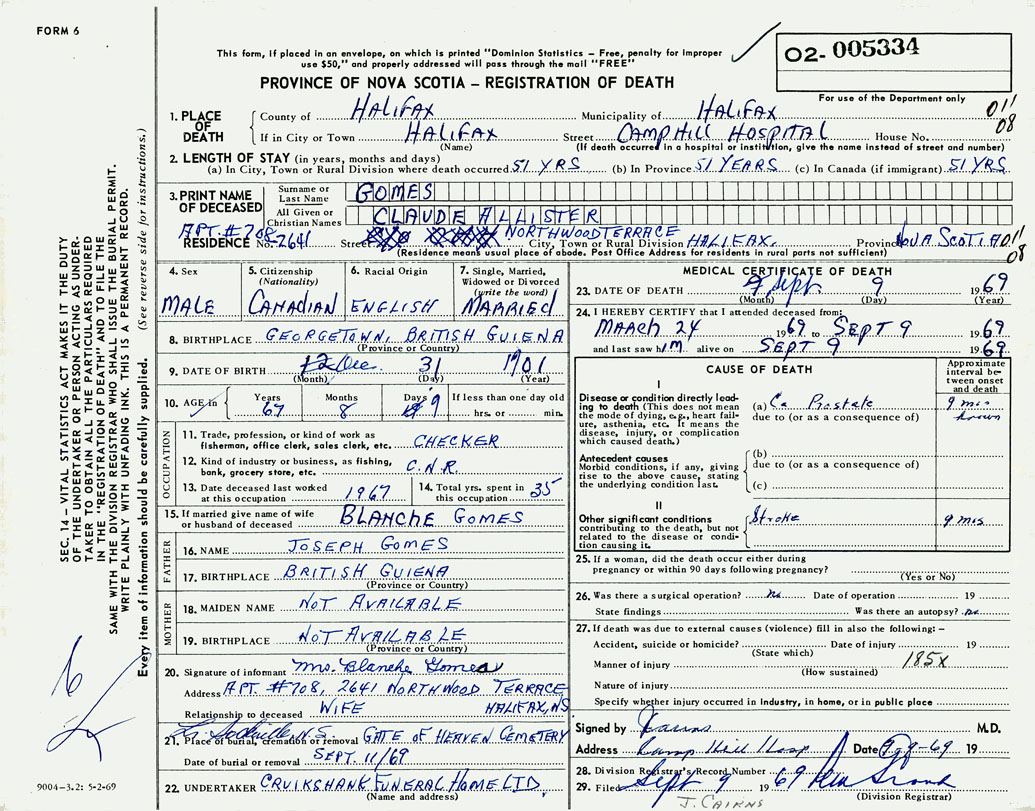 FORM 6
This form, if placed in an envelope, on which is printed "Dominion Statistics – Free, penalty for improper
use $50," and properly addressed will pass through the mail "FREE"
PROVINCE OF NOVA SCOTIA – REGISTRATION OF DEATH
02- 005334
For use of the Department only
011
08
1. PLACE OF DEATH
County of HALIFAX Municipality of HALIFAX
If in City or Town HALIFAX Street CAMP HILL HOSPITAL House No.
(Name) (If death occurred in a hospital or institution, give the name instead of street and number)
2. LENGTH OF STAY (in years, months and days)
(a) In City, Town or Rural Division where death occurred 51 YRS (b) In Province 51 YEARS (c) In Canada (if immigrant) 51 YRS
3. PRINT NAME OF DECEASED
Surname or Last Name GOMES
All Given or Christian Names CLAUDE ALLISTER
APT. #708
RESIDENCE No. 2641 Street NORTHWOOD TERRACE City, Town or Rural Division HALIFAX, Province NOVA SCOTIA 011
08
(Residence means usual place of abode. Post Office Address for residents in rural parts not sufficient)
4. Sex
MALE
5. Citizenship (Nationality)
CANADIAN
6. Racial Origin
ENGLISH
7. Single, Married, Widowed or Divorced (write the word)
MARRIED
8. BIRTHPLACE GEORGETOWN, BRITISH GUIENA
(Province or Country)
9. DATE OF BIRTH 12 Dec. 31 1901
(Month) (Day) (Year)
10. AGE in Years 67 Months 8 Days 9 If less than one day old
hrs. or min.
OCCUPATION
11. Trade, profession, or kind of work as
fisherman, office clerk, sales clerk, etc. CHECKER
12. Kind of industry or business, as fishing,
bank, grocery store, etc. C.N.R.
13. Date deceased last worked
at this occupation 1967
14. Total yrs. spent in
this occupation 35
15. If married give name of wife
or husband of deceased BLANCHE GOMES
FATHER
16. NAME JOSEPH GOMES
17. BIRTHPLACE BRITISH GUIENA
(Province or Country)
MOTHER
18. MAIDEN NAME NOT AVAILABLE
19. BIRTHPLACE NOT AVAILABLE
(Province or Country)
20. Signature of informant Mrs. Blanche Gomes
Address APT. #708, 2641 NORTHWOOD TERRACE
Relationship to deceased WIFE HALIFAX, NS
Sackville, N.S.
21. Place of burial, cremation or removal GATE OF HEAVEN CEMETERY
Date of burial or removal SEPT. 11/69
22. UNDERTAKER CRUIKSHANK FUNERAL HOME LTD.
(Name and address)
MEDICAL CERTIFICATE OF DEATH
23. DATE OF DEATH Sept. 9 1969
(Month) (Day) (Year)
24. I HEREBY CERTIFY that I attended deceased from:
MARCH 24 1969 to SEPT 9 1969
and last saw him alive on SEPT 9 1969
CAUSE OF DEATH
Approximate interval between onset and death
I
Disease or condition directly leading to death (This does not
mean the mode of dying, e.g., heart failure, asthenia, etc. It means the
disease, injury, or complication
which caused death.)
(a) Ca Prostate 9 mos
due to (or as a consequence of) known
Antecedent causes
Morbid conditions, if any, giving
rise to the above cause, stating
the underlying condition last.
(b)
due to (or as a consequence of)
(c)
II
Other significant conditions
contributing to the death, but not
related to the disease or condition causing it.
Stroke 9 mos
25. If a woman, did the death occur either during
pregnancy or within 90 days following pregnancy?
(Yes or No)
26. Was there a surgical operation? no Date of operation 19
State findings Was there an autopsy? no
27. If death was due to external causes (violence) fill in also the following: –
Accident, suicide or homicide? Date of injury 19
(State which)
Manner of injury 185X
(How sustained)
Nature of injury
Specify whether injury occurred in industry, in home, or in public place
Signed by Cairns M.D.
Address Camp Hill Hosp Date 9-9-69 19
28. Division Registrar's Record Number
29. Filed Sept 9 1969
(Division Registrar)
J. CAIRNS
SEC. 14 – VITAL STATISTICS ACT MAKES IT THE DUTY
OF THE UNDERTAKER OR PERSON ACTING AS UNDER-
TAKER TO OBTAIN ALL THE PARTICULARS REQUIRED
IN THE "REGISTRATION OF DEATH" AND TO FILE THE
SAME WITH THE DIVISION REGISTRAR WHO SHALL ISSUE THE BURIAL PERMIT.
WRITE PLAINLY WITH UNFADING INK. THIS IS A PERMANENT RECORD.
Every item of information should be carefully supplied. (See reverse side for instructions.)
9004-3.2: 5-2-69